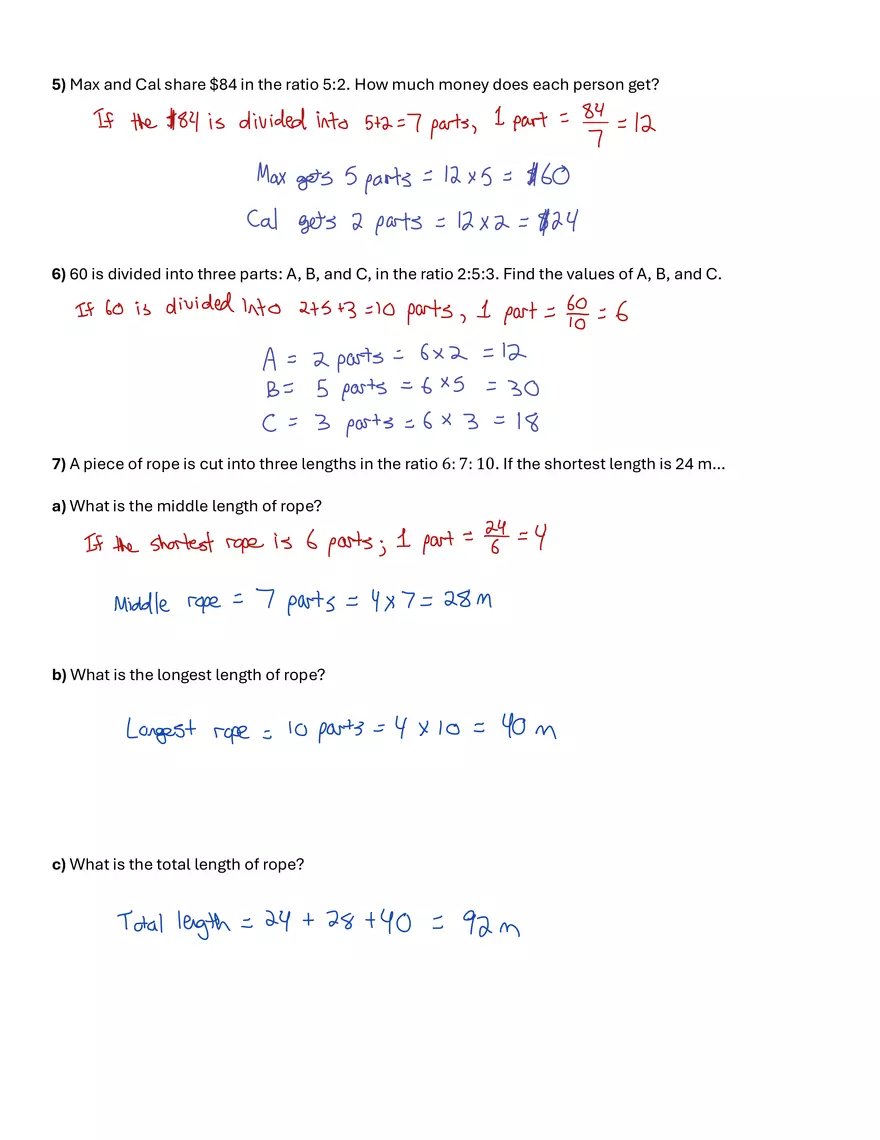 5) Max and Cal share $84 in the ratio 5:2. How much money does each person get?
If the $84 is divided into 5+2=7 parts, 1 part = 84/7 = 12
Max gets 5 parts = 12 x 5 = $60
Cal gets 2 parts = 12 x 2 = $24
6) 60 is divided into three parts: A, B, and C, in the ratio 2:5:3. Find the values of A, B, and C.
If 60 is divided into 2+5+3=10 parts, 1 part = 60/10 = 6
A = 2 parts = 6x2 = 12
B = 5 parts = 6x5 = 30
C = 3 parts = 6 x 3 = 18
7) A piece of rope is cut into three lengths in the ratio 6: 7: 10. If the shortest length is 24 m...
a) What is the middle length of rope?
If the shortest rope is 6 parts; 1 part = 24/6 = 4
Middle rope = 7 parts = 4x7 = 28m
b) What is the longest length of rope?
Longest rope = 10 parts = 4 x 10 = 40 m
c) What is the total length of rope?
Total length = 24 + 28 + 40 = 92 m